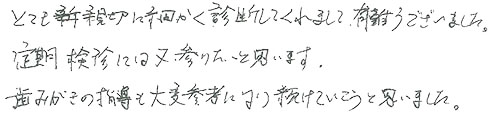 とても親切に細かく診断してくれまして有難うございました。
定期検診には又参りたいと思います。
歯みがきの指導も大変参考になり続けていこうと思いました。